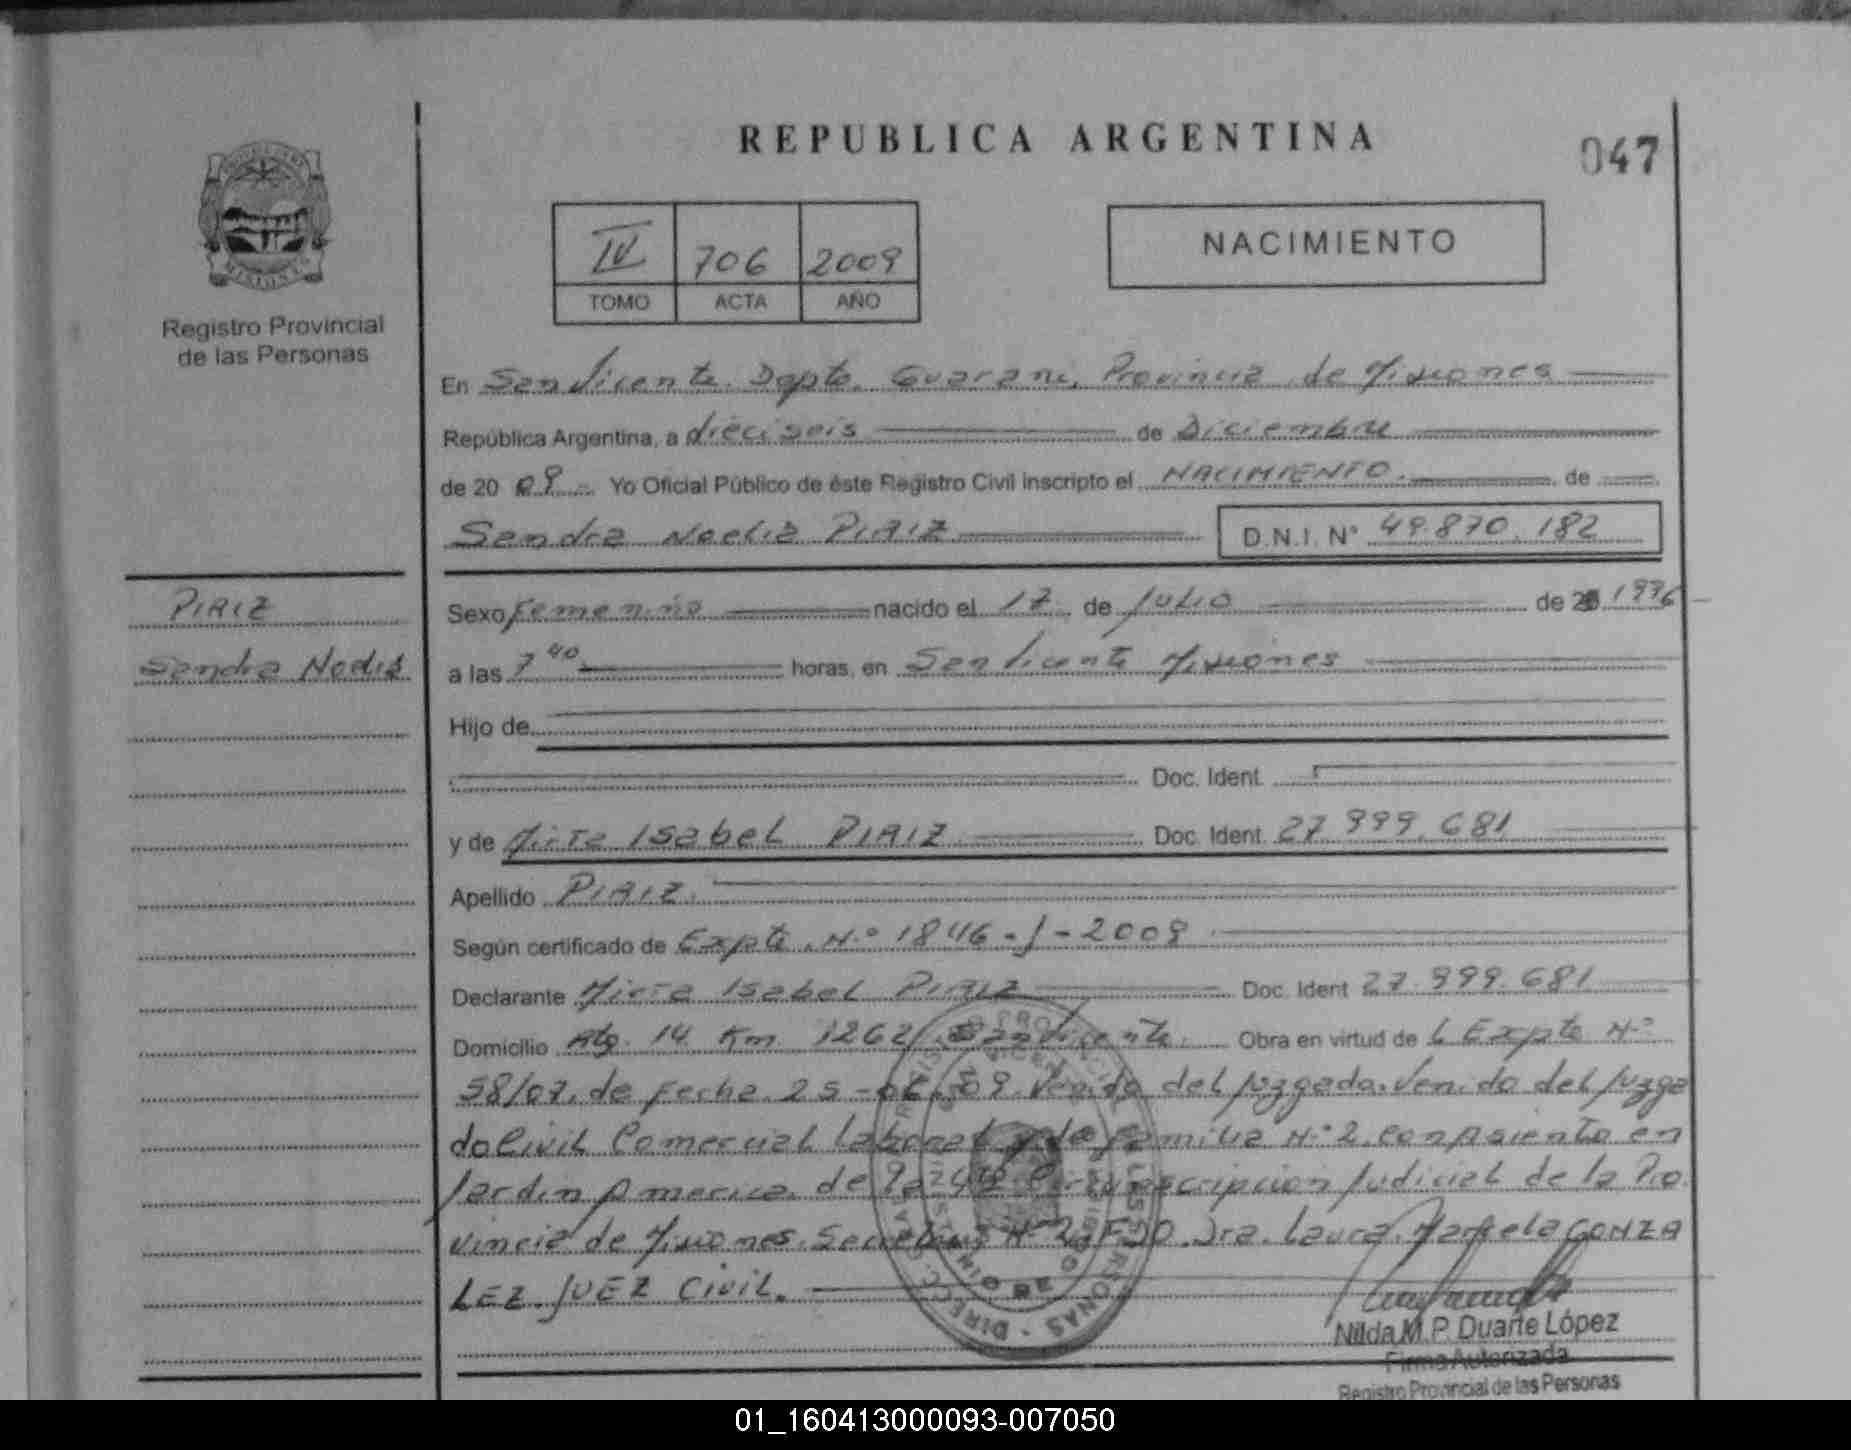 REPUBLICA ARGENTINA
047
MISIONES
Registro Provincial
de las Personas
IV 706 2009
TOMO ACTA AÑO
NACIMIENTO
En San Vicente Dpto. Guarani, Provincia de Misiones
República Argentina, a dieciseis de Diciembre
de 20 09 Yo Oficial Público de éste Registro Civil inscripto el NACIMIENTO. de
Sandra Noelia PIRIZ D.N.I. N° 49.870.182
PIRIZ
Sandra Noelia
Sexo Femenino nacido el 17 de Julio de 1996
a las 7 40 horas, en San Vicente Misiones
Hijo de
Doc. Ident.
y de Mirta Isabel PIRIZ Doc. Ident. 27.999.681
Apellido PIRIZ.
Según certificado de Expte. N.º 1846-J-2009
Declarante Mirta Isabel PIRIZ Doc. Ident 27.999.681
Domicilio Km 1262 San Vicente. Obra en virtud de L Expte N.º
58/07. de Fecha 25 09. Venido del Juzgado. Venido del Juzga
do Civil Comercial Laboral y de Familia N.º 2. con Asiento en
Jardin America. de la Circunscripcion Judicial de la Pro
vincia de Misiones. Secretaria N.º 2. FDO. Dra. Laura Marcela GONZA
LEZ. JUEZ Civil.
Nilda M. P. Duarte López
Firma Autorizada
Registro Provincial de las Personas
01_160413000093-007050